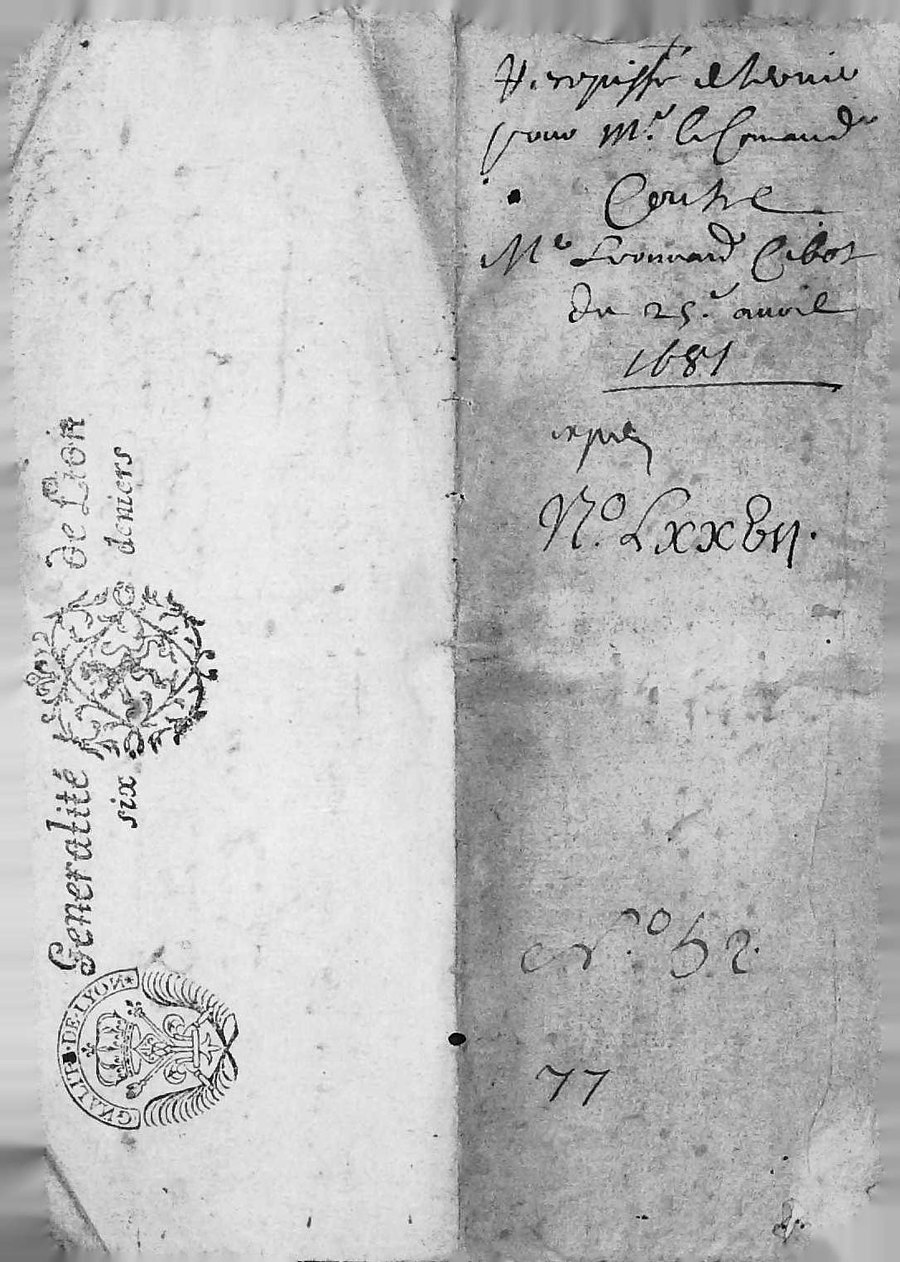 Generalité de Lion
six deniers
GNALITE·DE·LYON
pour Mr. le Comand
Contre
Me Leonnard Cibot
du 25e. auril
1681
No. LXXVII.
No. 52.
77